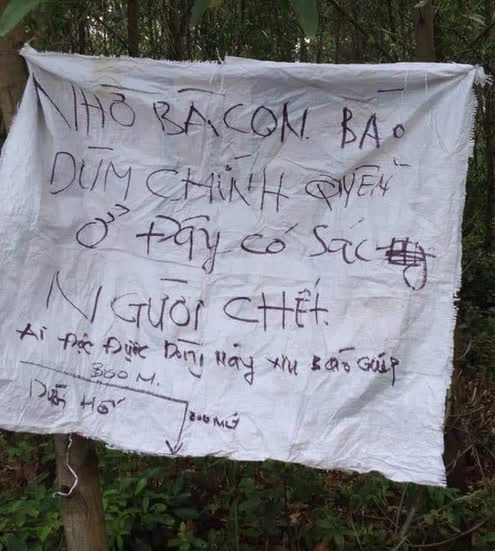 NHỜ BÀ CON BÁO
DÙM CHÍNH QUYỀN
Ở ĐÂY CÓ SÁC
NGƯỜI CHẾT.
Ai Đọc Được Dòng Này Xin Báo Giúp
800 M.